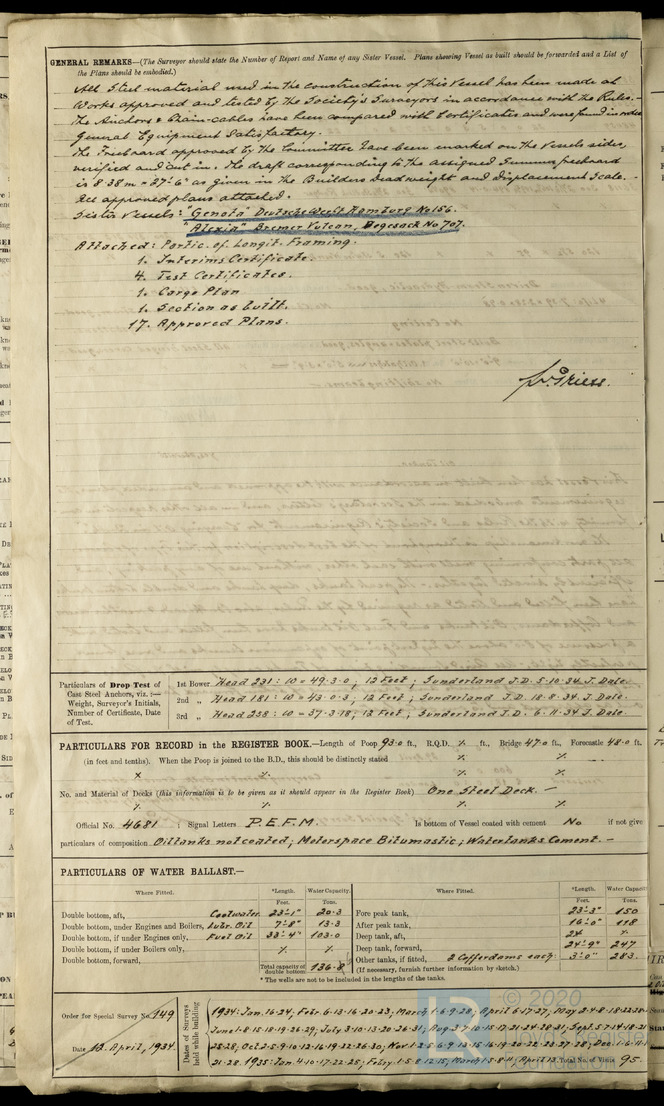 GENERAL REMARKS—(The Surveyor should state the Number of Report and Name of any Sister Vessel. Plans showing Vessel as built should be forwarded and a List of
the Plans should be embodied.)
All Steel material used in the construction of this Vessel has been made at
Works approved and tested by the Society's Surveyors in accordance with the Rules.-
The Anchors & Chain-cables have been compared with Certificates and were found in order
General Equipment Satisfactory.
The Freeboard approved by the Committee have been marked on the Vessels sides,
verified and cut in. The draft corresponding to the assigned Summerfreeboard
is 8.38 m = 27'-6" as given in the Builders Deadweight and Displacement Scale. -
All approved plans attached.
Sister Vessels: "Genota" Deutsche Werft Hamburg No 156.
"Alexia" Bremer Vulcan, Vegesack No 707.
Attached: Partic. of Longit. Framing.
1. Interims Certificate.
4. Test Certificates.
1. Cargo Plan
1. Section as built.
17. Approved Plans.
Particulars of Drop Test of
Cast Steel Anchors, viz. :—
Weight, Surveyor's Initials,
Number of Certificate, Date
of Test.
1st Bower Head 231: W = 49.3.0; 12 Feet; Sunderland J.D. 5.10.34 J. Dale.
2nd „ Head 181: W = 43.0.3; 12 Feet; Sunderland J.D. 18.8.34 J. Dale.
3rd „ Head 258: W = 37.3.18; 12 Feet; Sunderland J.D. 6.11.34 J. Dale
PARTICULARS FOR RECORD in the REGISTER BOOK.—Length of Poop 93.0 ft., R.Q.D. ft., Bridge 47.0 ft., Forecastle 48.0 ft.
(in feet and tenths). When the Poop is joined to the B.D., this should be distinctly stated
No. and Material of Decks (this information is to be given as it should appear in the Register Book) One Steel Deck. —
Official No. 4681 ; Signal Letters P.E.F.M. Is bottom of Vessel coated with cement No if not give
particulars of composition Oiltanks not coated; Motorspace Bitumastic; Watertanks Cement. —
PARTICULARS OF WATER BALLAST.—
Where Fitted. *Length. Water Capacity. Where Fitted. *Length. Water Capacity
Feet. Tons. Feet. Tons.
Double bottom, aft, Coolwater 23'-1" 20.3 Fore peak tank, 23'-3" 150
Double bottom, under Engines and Boilers, Lubr. Oil 7'-8" 13.3 After peak tank, 16'-0" 118
Double bottom, if under Engines only, Fuel Oil 33'-4" 103.0 Deep tank, aft,
Double bottom, if under Boilers only, Deep tank, forward, 24'-9" 247
Double bottom, forward, Other tanks, if fitted, 2 Cofferdams each 3'-0" 283
Total capacity of double bottom 136.6 (If necessary, furnish further information by sketch.)
* The wells are not to be included in the lengths of the tanks.
Order for Special Survey No. 149
Date 13. April, 1934.
Dates of Surveys
held while building
1934: Jan. 16.24, Febr. 6.13.16.20.23; March 1.6.9.28; April 6.17.27; May 2.4.8.18.22.28
June 1.8.15.18.19.26.29; July 3.10.13.20.26.31; Aug 3.7.10.15.17.21.24.28.31; Sept. 5.7.14.18.21
25.28, Oct. 2.5.9.10.12.16.19.22.26.30; Nov. 1.2.5.6.9.13.15.16.19.20.22.23.27.28; Dec. 1.6.11
21.28. 1935: Jan. 4.10.17.22.25; Febry. 1.5.8.12.15; March 1.5.8.11; April 13. Total No. of Visits 95.
© 2020
Lloyd's Register
Foundation